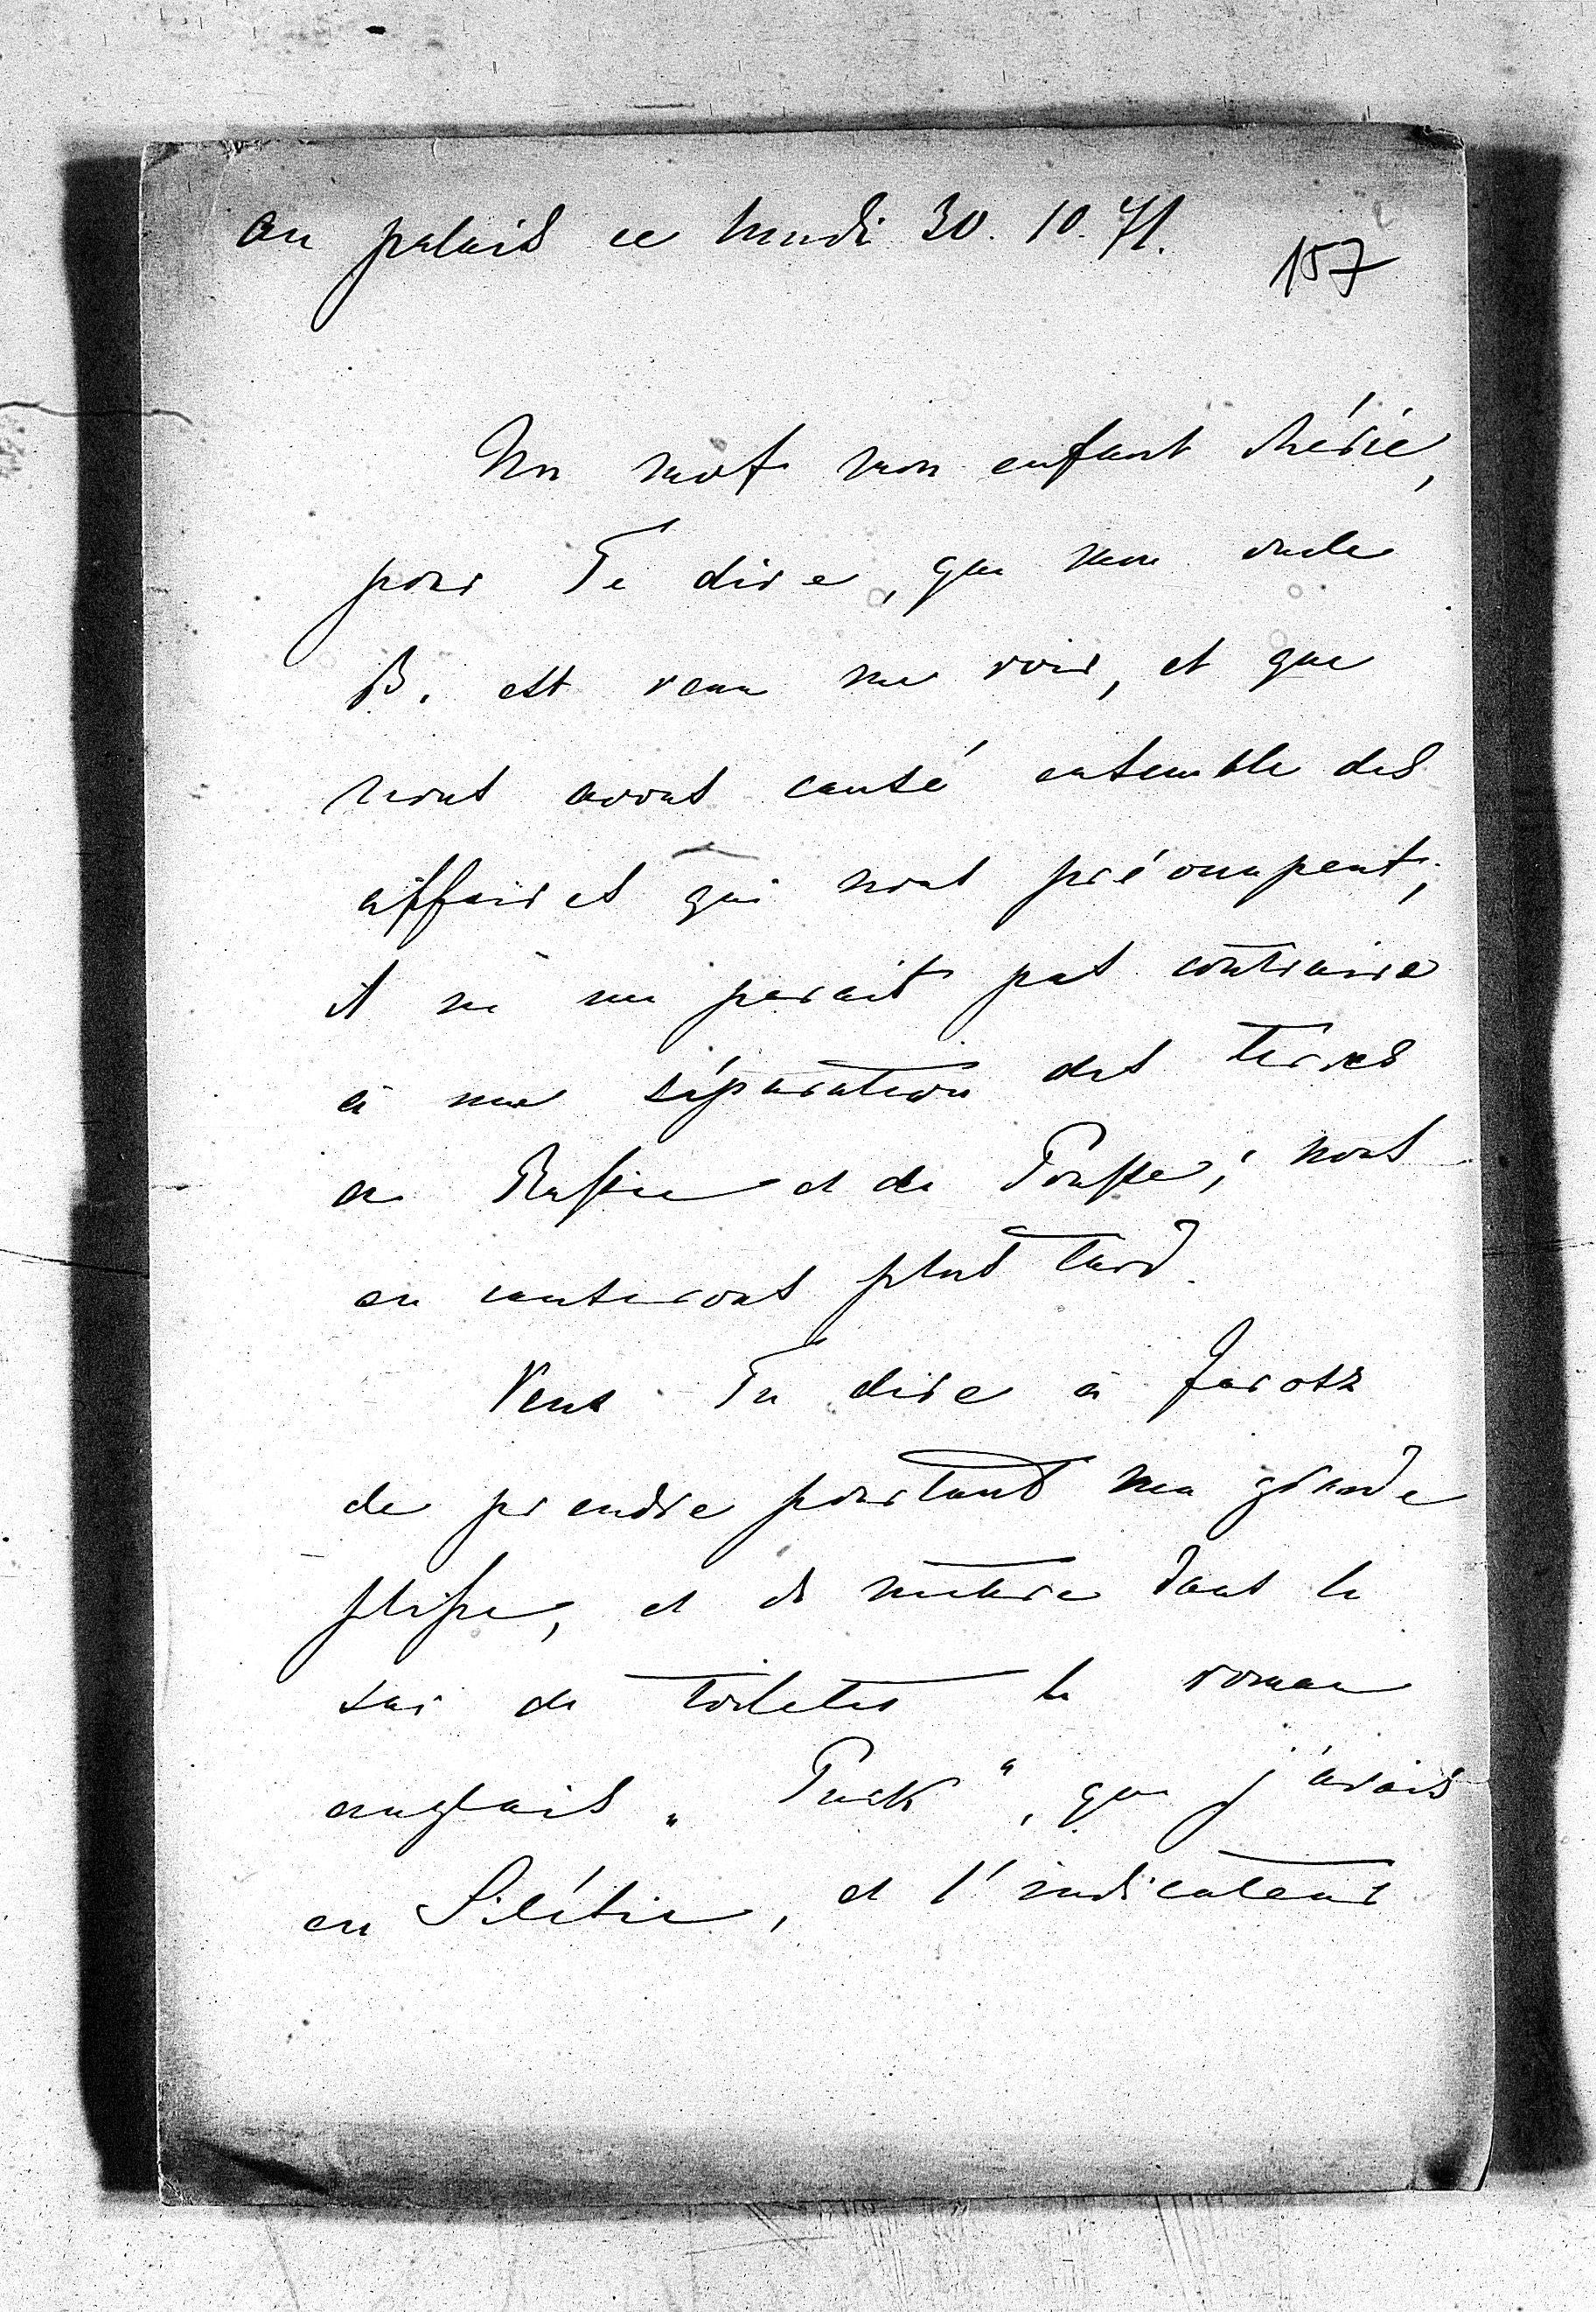 au palais ce lundi 30. 10. 71.
157
Un mot mon enfant chérie,
pour Te dire, que mon oncle
B. est venu me voir, et que
nous avons causé ensemble des
affaires qui nous préoccupent;
il ne me parait pas contraire
à une séparation des terres
en Russie et de Prusse; nous
en causerons plus tard.
Veux Tu dire à Jarosz
de prendre pourtant ma grande
plisse, et de mettre dans le
sac de toilettes le roman
anglais „Puck“, que j'avais
en Silésie, et l'indicateur